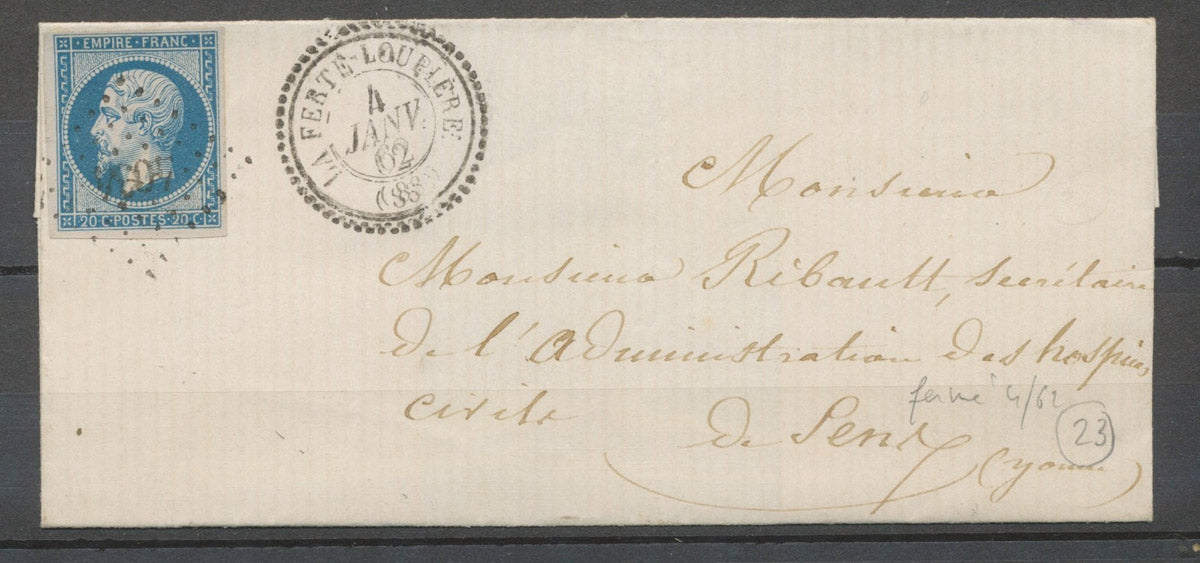 EMPIRE·FRANC·
20·C·POSTES·20·C·
LA FERTÉ-LOUPIÈRE
4
JANV.
62
(88)
Monsieur
Monsieur Ribault, secrétaire
de l'administration des hospices
civils
de Sens
(Yonne)
fermé 4/62
23